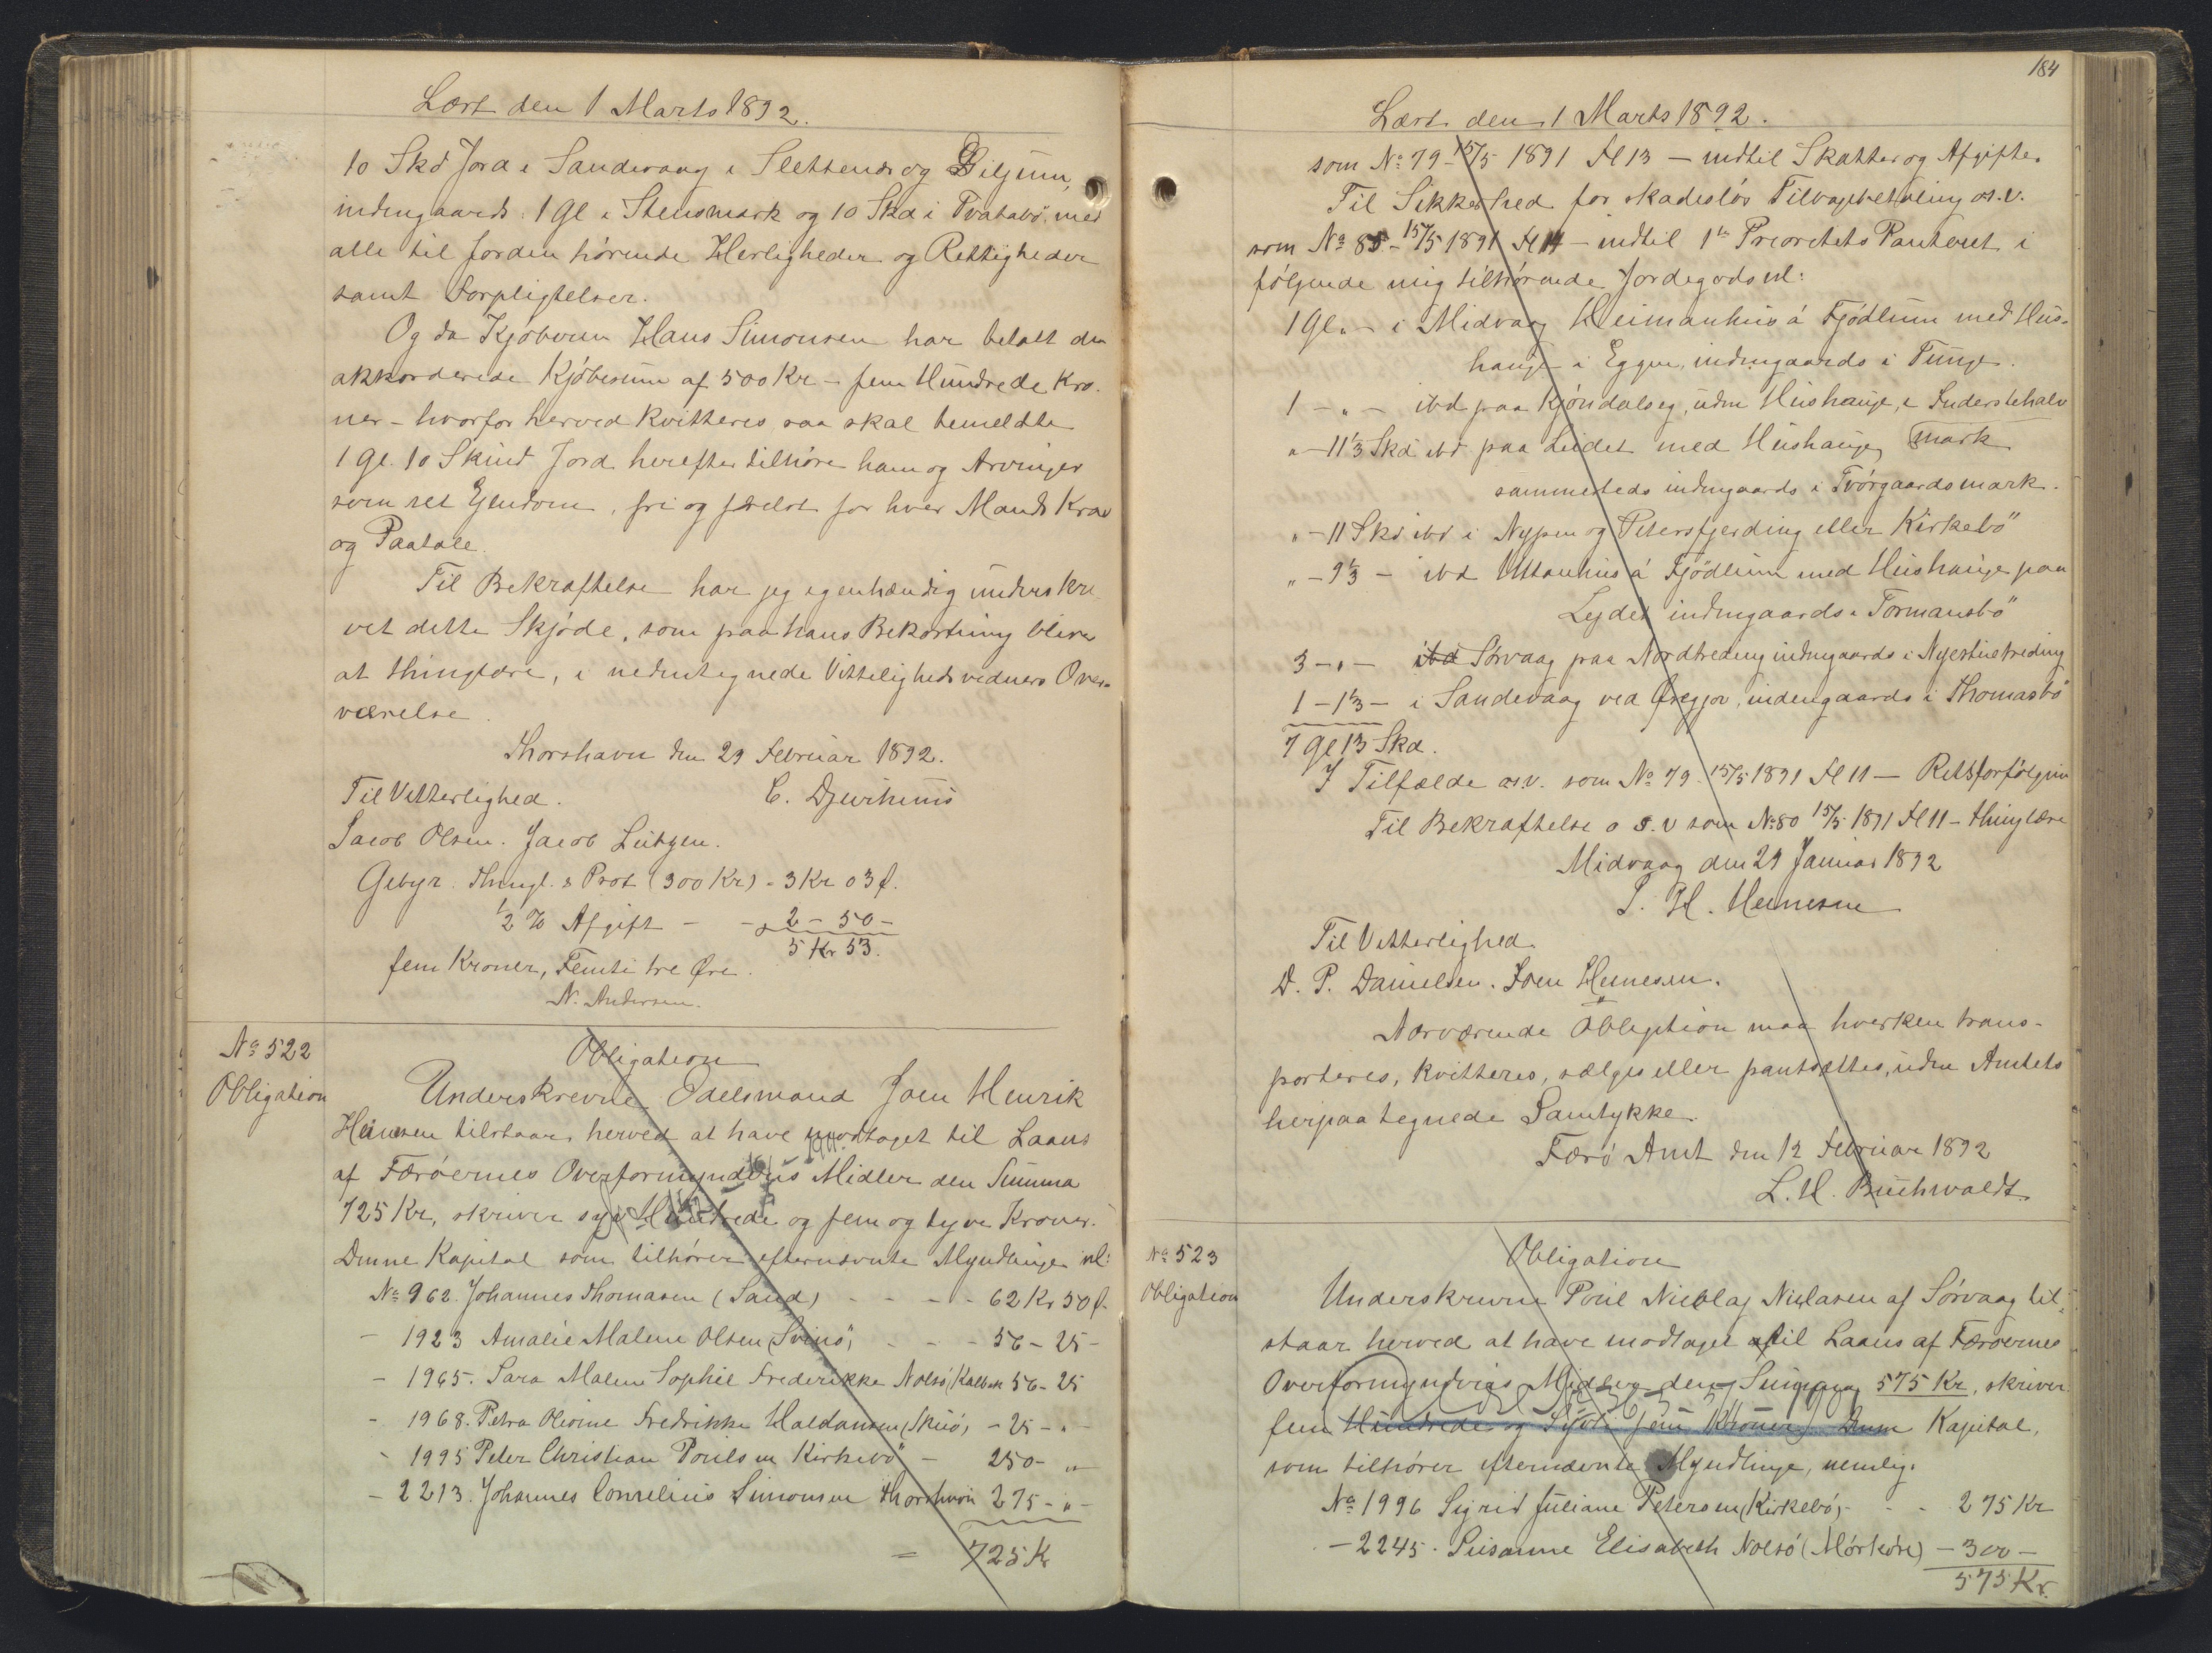 Læst den 1 Marts 1892.
10 Skd Jord i Sandevaag i Slettende og Giljum,
indengaards: 1 Gl i Stensmark og 10 Skd i Tvatabö, med
alle til Jorden hørende Herligheder og Rettigheder
samt Forpligtelser.
Og da Kjøberen Hans Simonsen har betalt den
akkorderede Kjøbesum af 500 Kr – fem Hundrede Kro-
ner – hvorfor herved kvitteres, saa skal bemeldte
1 Gl. 10 Skind Jord herefter tilhøre ham og Arvinger
som ret Ejendom, fri og frelst for hver Mands Krav
og Paatale.
Til Bekræftelse har jeg egenhændig underskre-
vet dette Skjøde, som paa hans Bekostning bliver
at thinglæse, i nedentegnede Vitterlighedsvidners Over-
værelse.
Thorshavn den 29 Februar 1892.
Til Vitterlighed. C. Djurhuus
Jacob Olsen. Jacob Lützen.
Gebyr. Thingl. & Prot (300 Kr) = 3 Kr 03 ø.
1/2 % Afgift – - 2 - 50 -
5 Kr 53.
fem Kroner, Femti tre Øre.
N. Andersen.
No 522
Obligation
Obligation
Underskrevne Odelsmand Joen Henrik
Heinesen tilstaar herved at have modtaget til Laans
af Færøernes Overformynderies Midler den Summa
725 Kr, skriver syv Hundrede og fem og tyve Kroner.
Denne Kapital som tilhører efternævnte Myndlinge nl:
No 962. Johannes Thomasen (Sand) - - - - 62 Kr 50 ø.
- 1923 Amalie Malene Olsen (Svinö) - - - 56 - 25 -
- 1965. Sara Malene Sophie Frederikke Nolsö (Kalbak 56 - 25
- 1968. Petra Olevine Fredrikke Haldansen (Skuö) - 25 - " -
- 1995 Peter Christian Poulsen Kirkebö - 250 - "
- 2213. Johannes Cornelius Simonsen Thorshavn 275 - " -
= 725 Kr
184
Læst den 1 Marts 1892.
som No 79 - 15/5 1891 Fl 13 – indtil Skatter og Afgifter.
Til Sikkerhed for skadesløs Tilbagebetaling o.s.v.
som No 85 - 15/5 1891 Fl 11 – indtil 1ste Prioritets Panteret i
følgende mig tilhørende Jordegods nl:
1 Gl. - i Midvaag Heimanhus á Fjödlum med Hus-
hauge i Eggen, indengaards i Tunge.
1 - " - ibd paa Kjóndalseg, uden Hushauge, i Inderstehalv
" - 11 1/3 Skd ibd paa Leidet med Hushauge mark
sammesteds indengaards i Tvörgaardsmark.
" - 11 Skd ibd i Nypen og Petersfjerding eller Kirkebö
" - 9 1/3 - ibd Uttanhus á Fjödlum med Hushauge paa
Lejdet indengaards i Tormansbö
3 - " - ibd Sörvaag paa Nordtreding indengaards i Nyestuetreding
1 - 1 1/3 - i Sandevaag ved, indengaards i Thomasbö
7 Gl 13 Skd.
I Tilfælde o.s.v. som No 79 - 15/5 1891 Fl 11 – Retsforfölgnin
Til Bekræftelse o s.v som No 80 15/5 1891 Fl 11 – thinglæse
Midvaag den 29 Januar 1892
J. H. Heinesen
Til Vitterlighed
D. P. Danielsen. Joen Heinesen.
Nærværende Obligation maa hverken trans-
porteres, kvitteres, sælges eller pantsættes, uden Amtets
herpaa tegnede Samtykke.
Færö Amt den 12 Februar 1892
L. H. Buchwaldt
No 523
Obligation
Obligation
Underskrevne Poul Nicolaj Niclasen af Sörvaag til-
staar herved at have modtaget til Laans af Færøernes
Overformynderies Midler den Summa 575 Kr, skriver
fem Hundrede og Syvti fem Kroner. Denne Kapital,
som tilhører efternævnte Myndlinge, nemlig:
No 1996 Sigrid Juliane Petersen (Kirkebö) - - 275 Kr
- 2245. Susanne Elisabeth Nolsö (Mörköre) - 300 -
575 Kr.